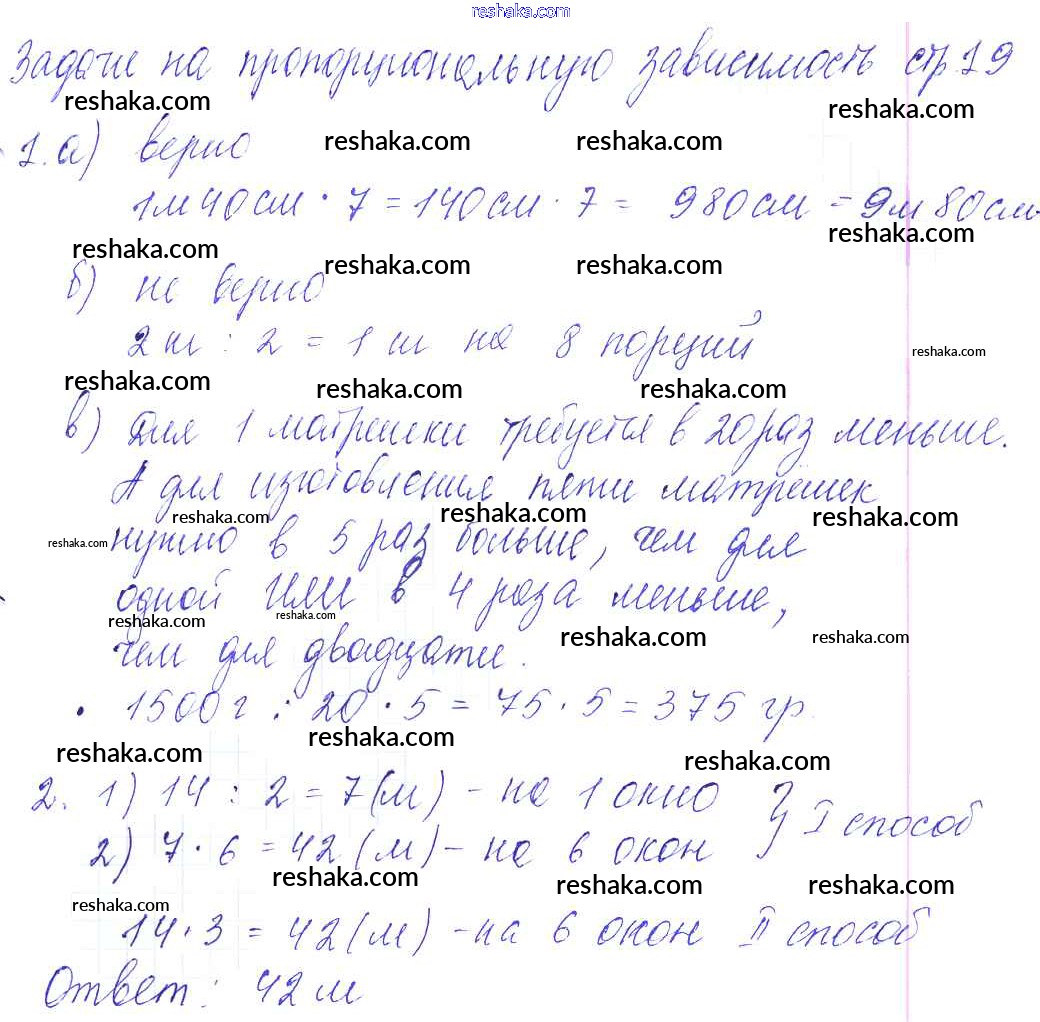 reshaka.com
Задачи на пропорциональную зависимость стр 19
reshaka.com reshaka.com
1. а) верно reshaka.com reshaka.com
1м 40 см · 7 = 140 см · 7 = 980 см = 9м 80 см
reshaka.com reshaka.com
reshaka.com reshaka.com
б) не верно
2 ст : 2 = 1 ст на 8 порций
reshaka.com
reshaka.com reshaka.com reshaka.com
в) Для 1 матрешки требуется в 20 раз меньше.
А для изготовления пяти матрёшек
reshaka.com reshaka.com reshaka.com
reshaka.com нужно в 5 раз больше, чем для
одной или в 4 раза меньше,
reshaka.com reshaka.com
чем для двадцати. reshaka.com reshaka.com
· 1500 г : 20 · 5 = 75 · 5 = 375 гр.
reshaka.com reshaka.com reshaka.com
2. 1) 14 : 2 = 7 (м) - на 1 окно } I способ
2) 7 · 6 = 42 (м) - на 6 окон
reshaka.com reshaka.com reshaka.com
reshaka.com
14 · 3 = 42 (м) - на 6 окон II способ
Ответ: 42 м